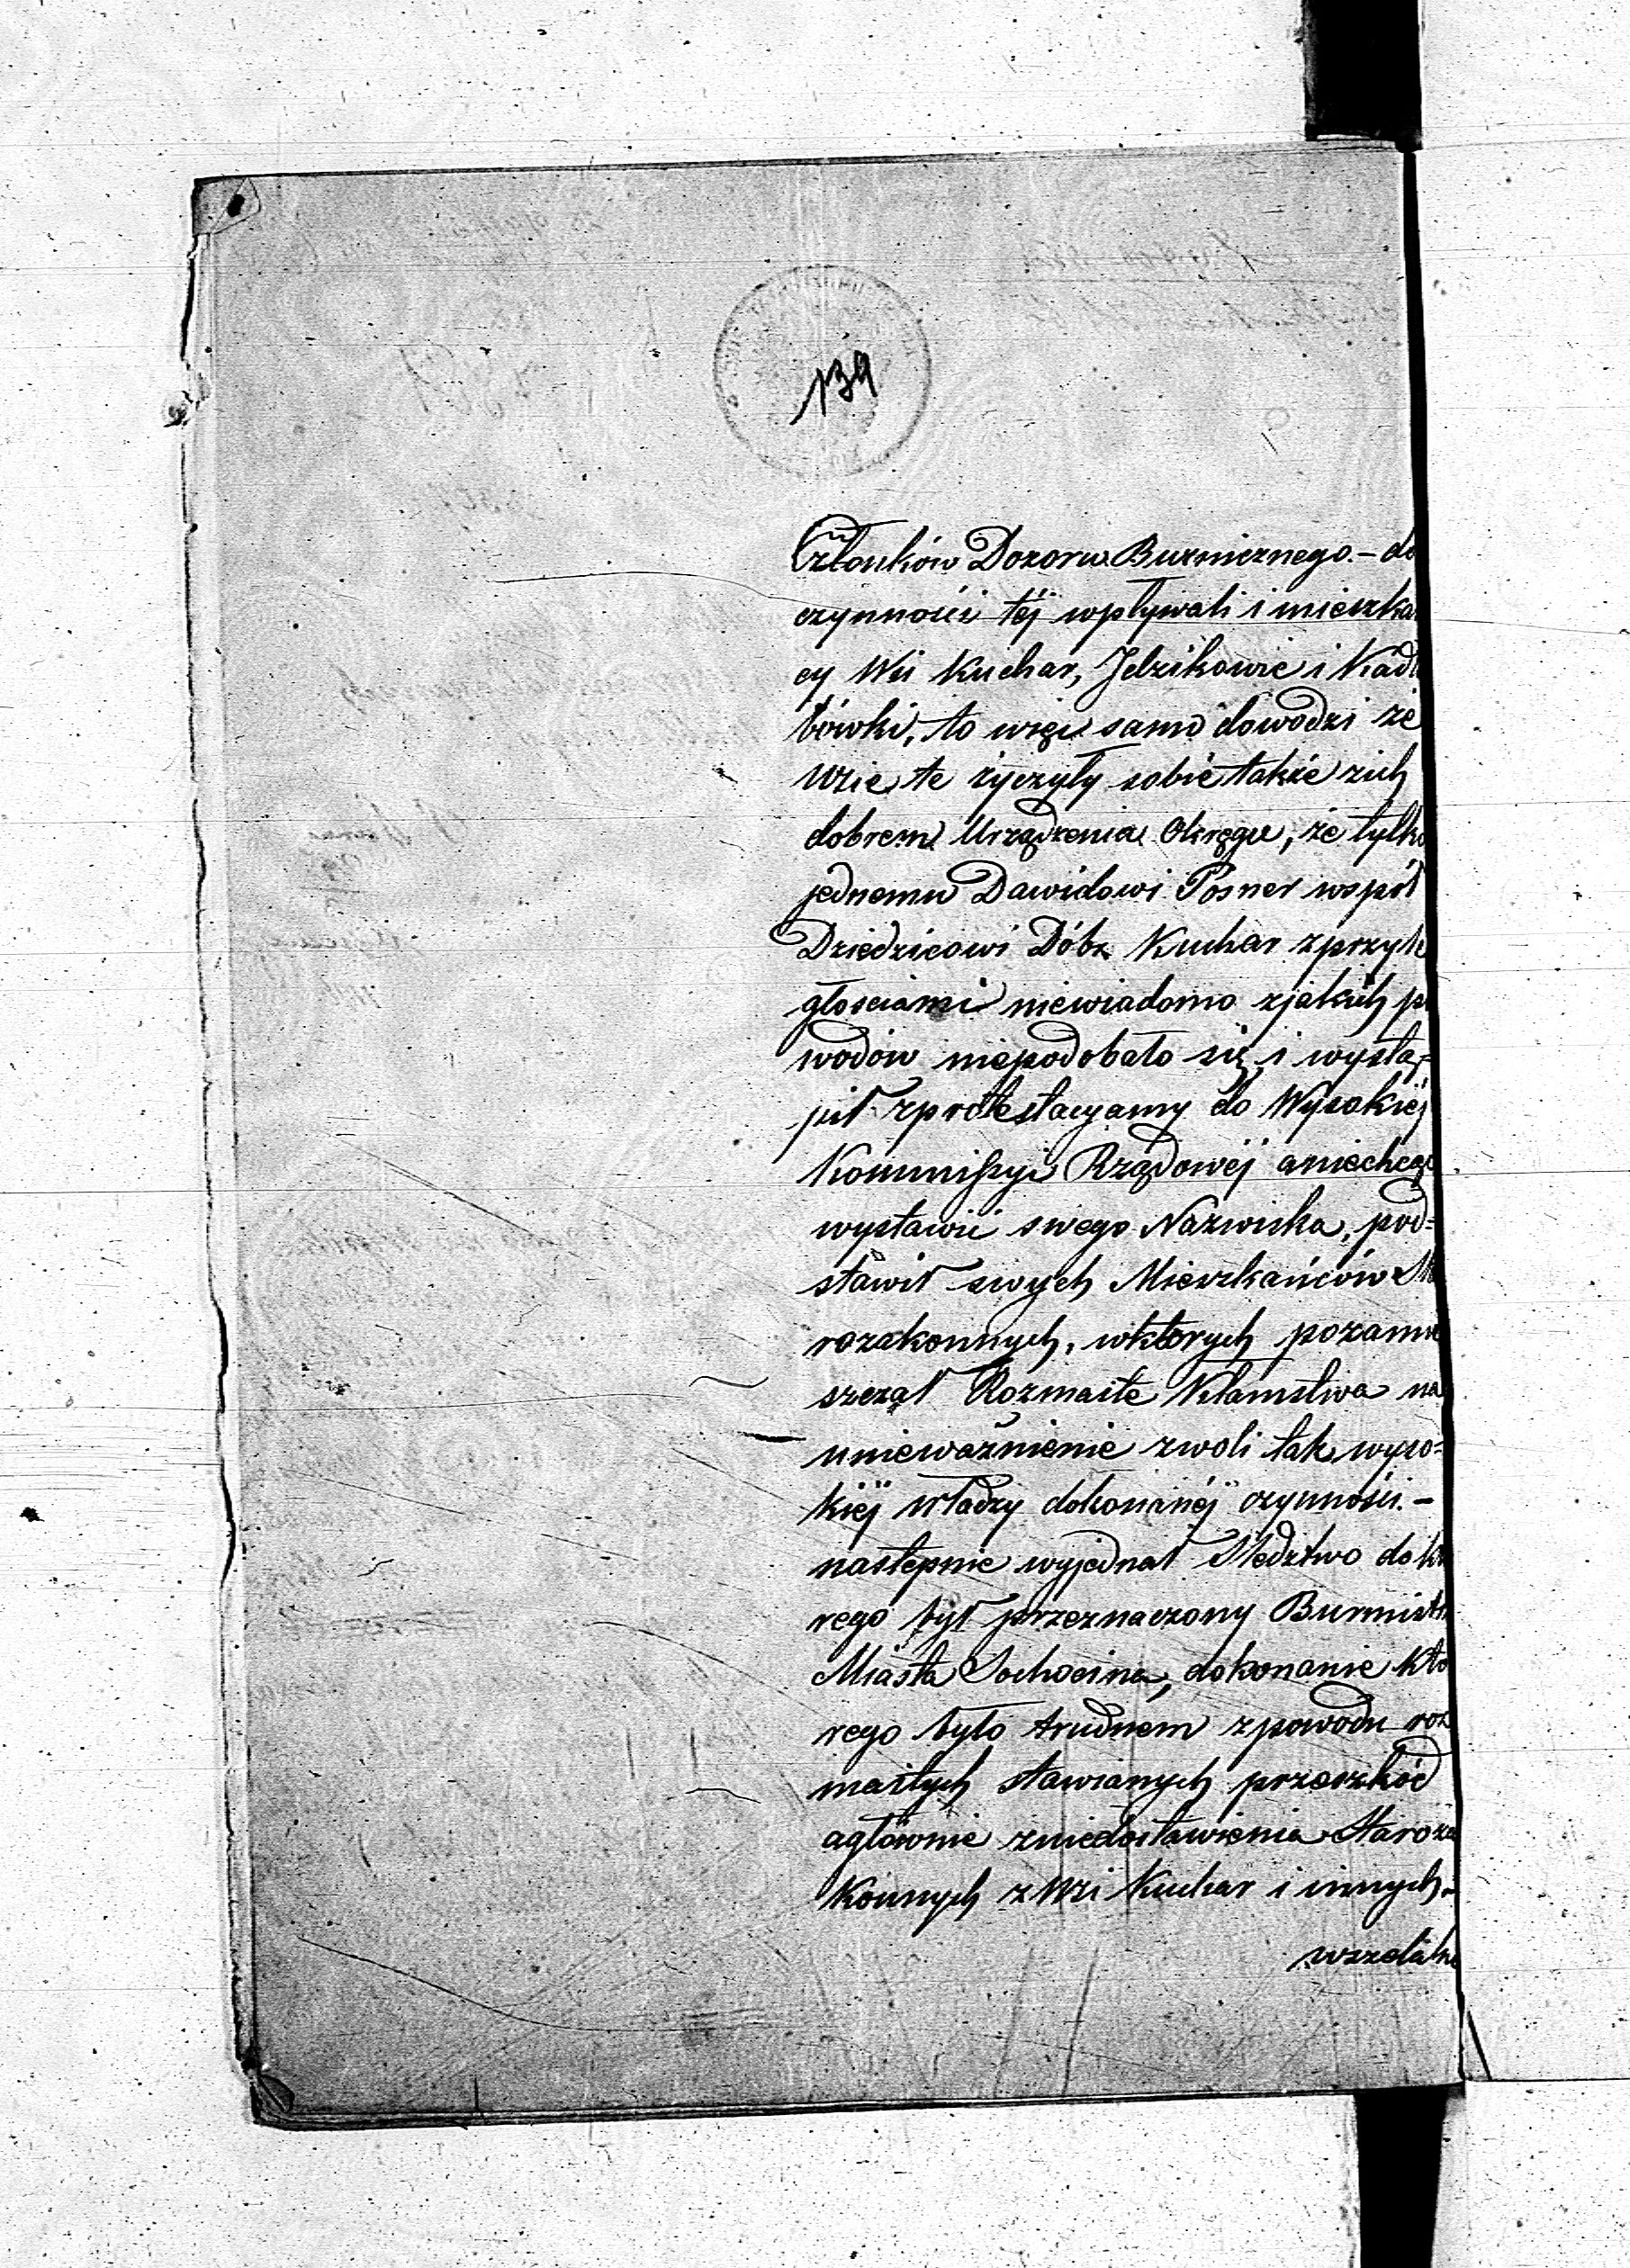 139
Członków Dozoru Buznicznego. – do
czynności téj wpływali i mieszka
cy Wsi Kuchar, Jelzikowie i Kadł
bówki, to więc samo dowodzi że
Wzie te życzyły sobie także zich
dobrem Urządzenia Okręgu, że tylko
jednemu Dawidowi Posner współ
Dziedzicowi Dóbr Kuchar zprzyle
głosciami niewiadomo zjakich po
wodów niepodobało się i wystą=
pił zprotestacyamy do Wysokiéj
Kommissyi Rządowéj aniechcąc
wystawić swego Nazwiska, pod=
stawił swych Mieszkańców St
rozakonnych, wktorych pozamie
szczał Rozmaite Kłamstwa na
unieważnienie zwoli tak wyso=
kiéj władzy dokonanéj czynności. –
następnie wyjednał Sledztwo do kt
rego był przeznaczony Burmistr
Miasta Sochocina, dokonanie kto
rego było trudnem zpowodu roz
maitych stawianych przeszkód
agłównie zniedostawienia Staroza
Konnych z Wzi Kuchar i innych. –
wszelak